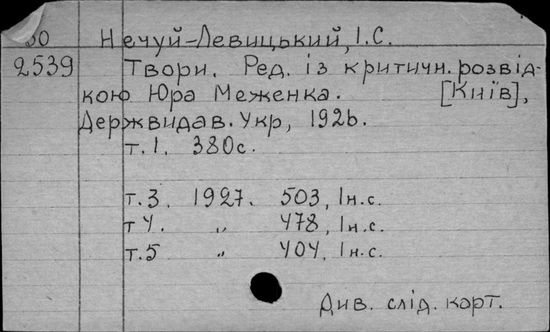 30 Нечуй-Левицький, І.С.
2539 Твори. Ред. із критичн. розвід-
кою Юра Меженка. [Київ],
Держвидав. Укр, 1926.
т.1. 380с.
т.3. 1927. 503, Ін.с.
т4. „ 478, Ін.с.
т.5 „ 404, Ін.с.
Див. слід. карт.